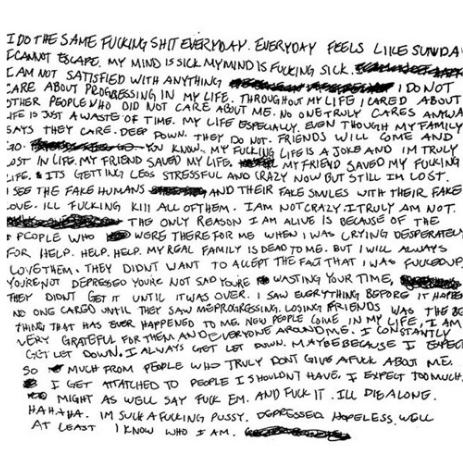 I DO THE SAME FUCKING SHIT EVERYDAY. EVERYDAY FEELS LIKE SUNDA
I CANNOT ESCAPE. MY MIND IS SICK. MY MIND IS FUCKING SICK.
I AM NOT SATISFIED WITH ANYTHING I DO NOT
CARE ABOUT PROGRESSING IN MY LIFE. THROUGHOUT MY LIFE I CARED ABOUT
OTHER PEOPLE WHO DID NOT CARE ABOUT ME. NO ONE TRULY CARES ANYWA
LIFE IS JUST A WASTE OF TIME. MY LIFE ESPECIALLY. EVEN THOUGH MY FAMILY
SAYS THEY CARE. DEEP DOWN. THEY DO NOT. FRIENDS WILL COME AND
GO. YOU KNOW. MY FUCKING LIFE IS A JOKE AND IM TRULY
LOST IN LIFE. MY FRIEND SAVED MY LIFE. MY FRIEND SAVED MY FUCKING
LIFE. & ITS GETTING LESS STRESSFUL AND CRAZY NOW BUT STILL IM LOST.
I SEE THE FAKE HUMANS AND THEIR FAKE SMILES WITH THEIR FAKE
LOVE. ILL FUCKING KILL ALL OF THEM. I AM NOT CRAZY I TRULY AM NOT.
THE ONLY REASON I AM ALIVE IS BECAUSE OF THE
PEOPLE WHO WERE THERE FOR ME WHEN I WAS CRYING DESPERATELY
FOR HELP. HELP. HELP. MY REAL FAMILY IS DEAD TO ME. BUT I WILL ALWAYS
LOVE THEM. THEY DIDNT WANT TO ACCEPT THE FACT THAT I WAS FUCKED UP.
YOURE NOT DEPRESSED YOURE NOT SAD YOURE WASTING YOUR TIME,
THEY DIDNT GET IT UNTIL IT WAS OVER. I SAW EVERYTHING BEFORE IT HAPPE
NO ONE CARED UNTIL THEY SAW ME PROGRESSING. LOSING FRIENDS WAS THE BE
THING THAT HAS EVER HAPPENED TO ME. NEW PEOPLE COME IN MY LIFE, I AM
VERY GRATEFUL FOR THEM AND EVERYONE AROUND ME. I CONSTANTLY
GET LET DOWN. I ALWAYS GET LET DOWN. MAYBE BECAUSE I EXPECT
SO MUCH FROM PEOPLE WHO TRULY DONT GIVE A FUCK ABOUT ME.
I GET ATTATCHED TO PEOPLE I SHOULDN'T HAVE. I EXPECT TOO MUCH.
MIGHT AS WELL SAY FUCK EM. AND FUCK IT. ILL DIE ALONE.
HAHAHA. IM SUCH A FUCKING PUSSY. DEPRESSED. HOPELESS. WELL
AT LEAST I KNOW WHO I AM.